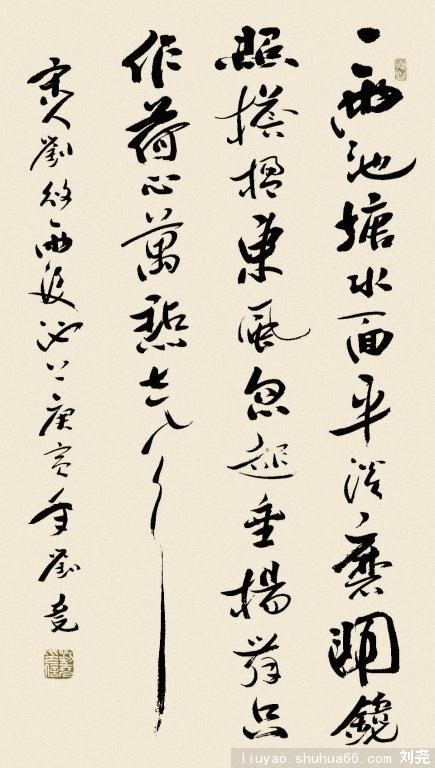 一雨池塘水面平淡磨明鏡
照檐楹東風忽起垂楊舞只
作荷心萬點聲
宋人劉攽雨後池上庚寅年劉堯
liuyao.shuhua66.com 刘尧